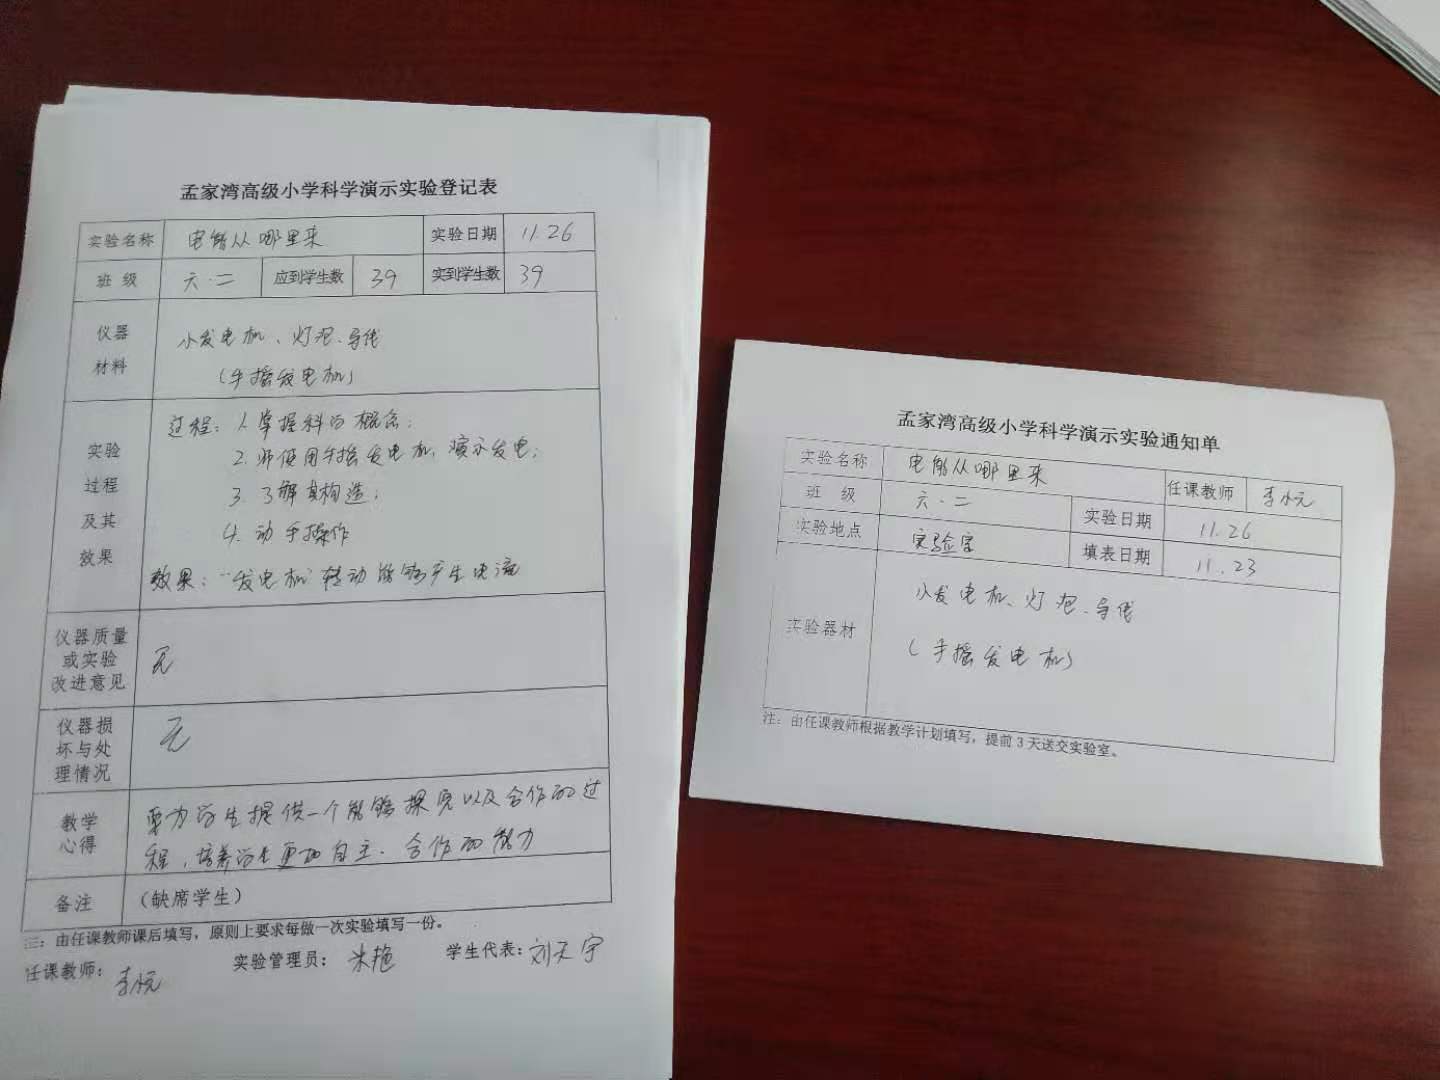 孟家湾高级小学科学演示实验登记表
实验名称 电能从哪里来 实验日期 11.26
班 级 六·二 应到学生数 39 实到学生数 39
仪器
材料
小发电机、灯泡、导线
(手摇发电机)
实验
过程
及其
效果
过程：1.掌握科学概念；
2.师使用手摇发电机，演示发电；
3.了解其构造；
4.动手操作
效果："发电机"转动能够产生电流
仪器质量
或实验
改进意见
无
仪器损
坏与处
理情况
无
教学
心得
要为学生提供一个能够探究以及合作的过
程，培养学生更加自主、合作的能力
备注 (缺席学生)
由任课教师课后填写，原则上要求每做一次实验填写一份。
任课教师： 实验管理员： 学生代表：刘天宇
孟家湾高级小学科学演示实验通知单
实验名称 电能从哪里来 任课教师
班 级 六·二 实验日期 11.26
实验地点 实验室 填表日期 11.23
实验器材
小发电机、灯泡、导线
(手摇发电机)
注：由任课教师根据教学计划填写，提前3天送交实验室。